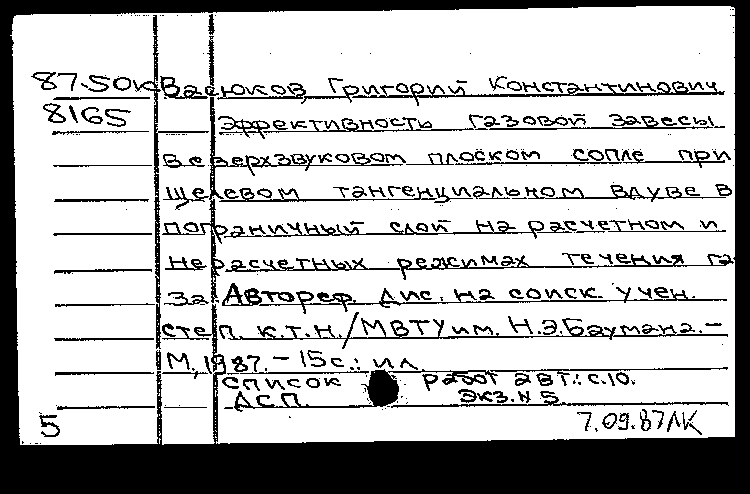 87-50к Васюков, Григорий Константинович
8165 Эффективность газовой завесы
в сверхзвуковом плоском сопле при
щелевом тангенциальном вдуве в
пограничный слой на расчетном и
нерасчетных режимах течения га
за: Автореф. дис. на соиск. учен.
степ. к.т.н./МВТУ им. Н.Э.Баумана.-
М., 1987.-15с.: ил.
Список работ авт.: с.10.
ДСП. Экз. N 5.
5 7.09.87ЛК